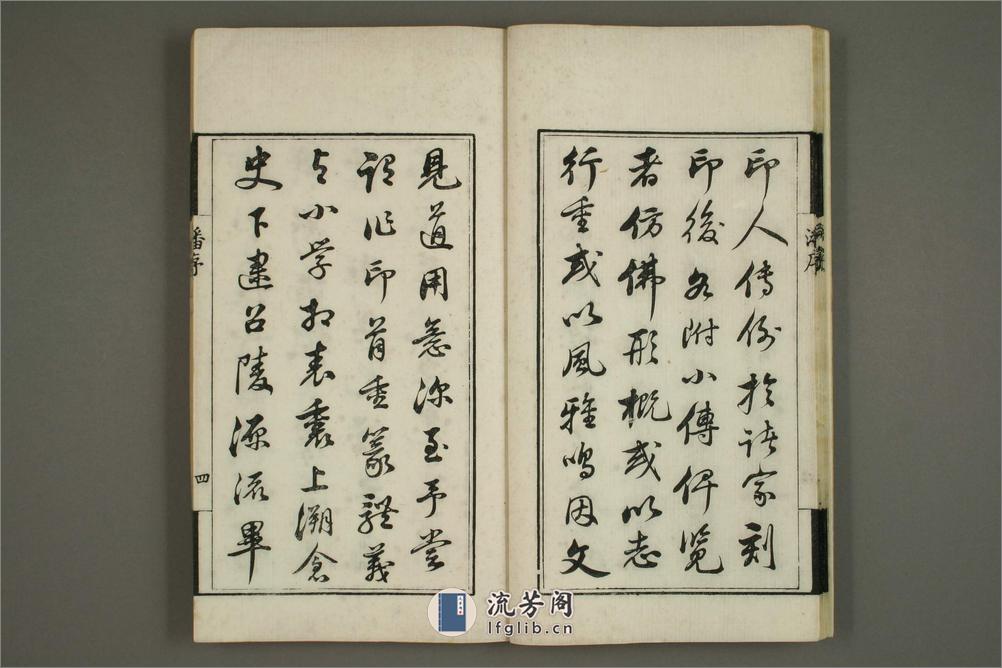 印人傳例於諸家刻
印後各附小傳俾覽
者仿佛形概或以志
行重或以風雅鳴因文
見道用意深至予嘗
謂作印首重篆體義
与小学相表裏上溯倉
史下逮召陵源流畢
潘序
四
流芳阁
lfglib.cn